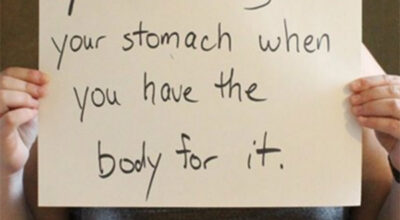 your stomach when
you have the
body for it.